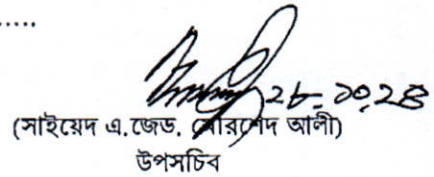 .....
২৮.১০.২৪
(সাইয়েদ এ.জেড. মোরশেদ আলী)
উপসচিব